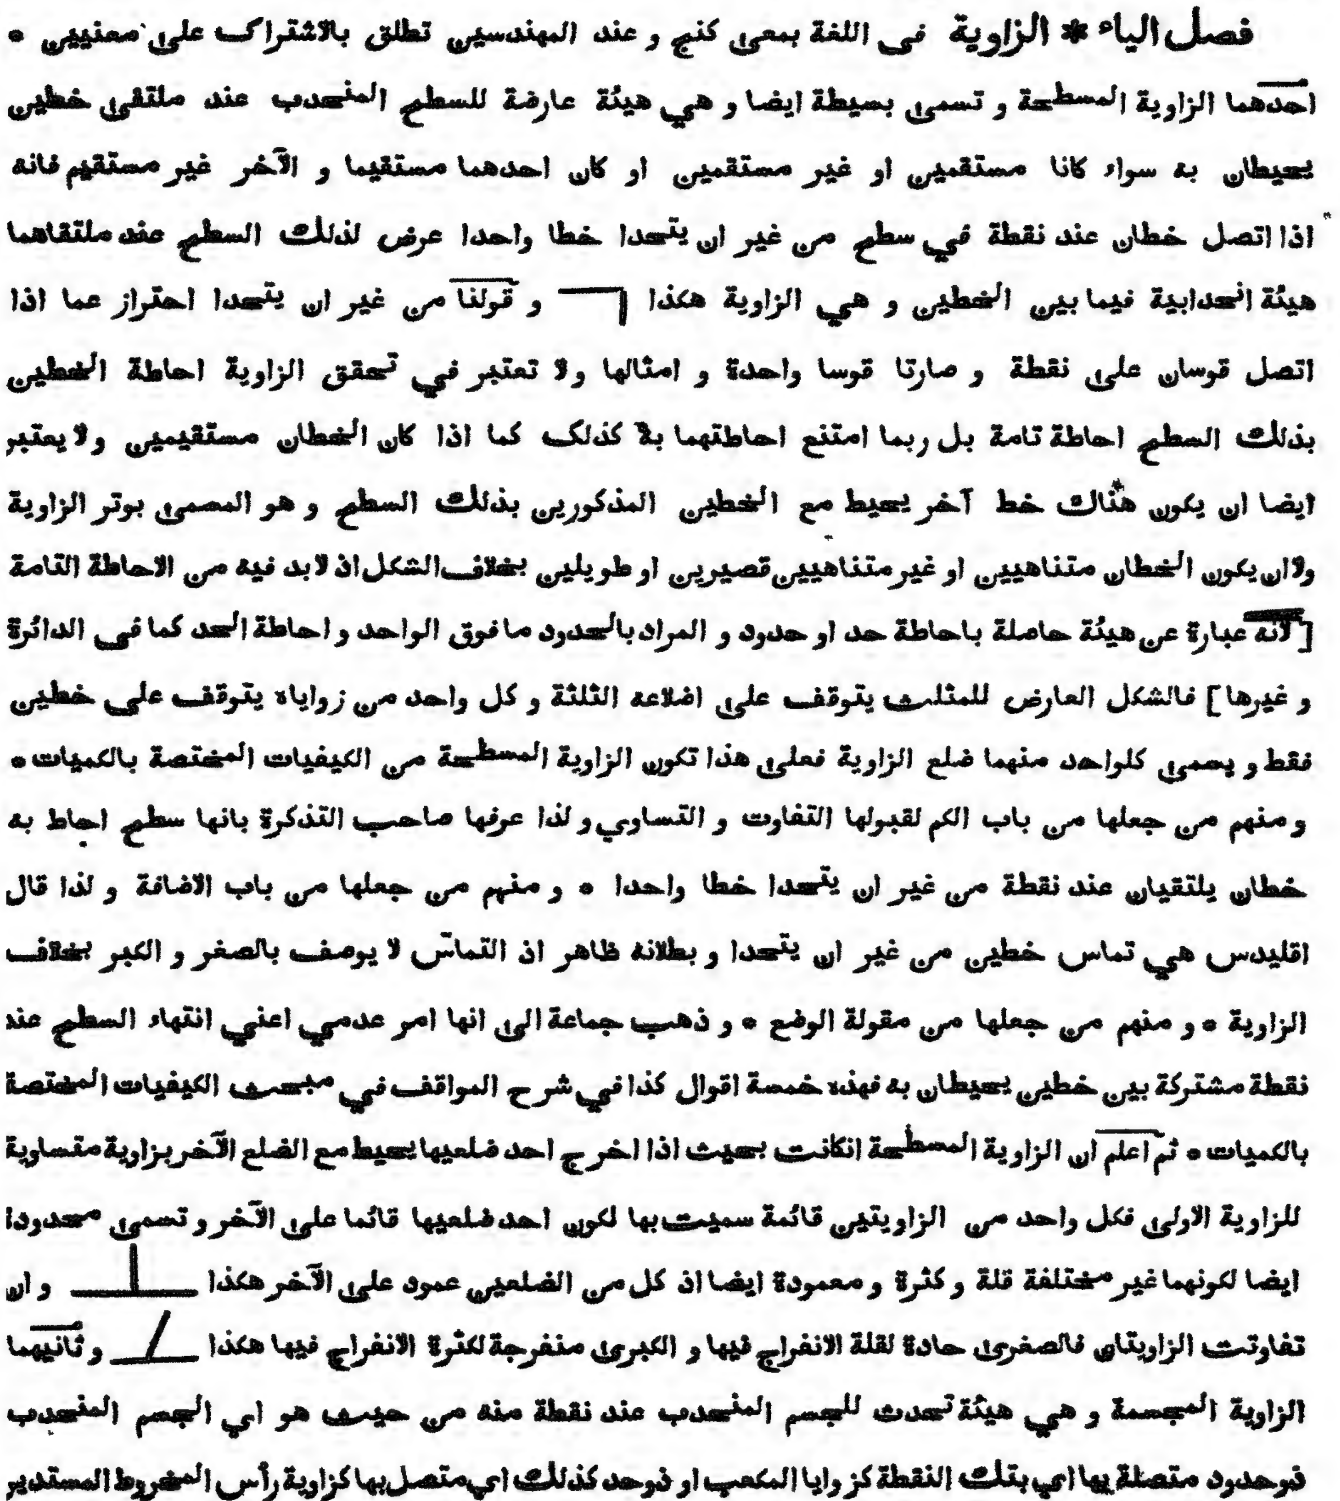 فصل الياء * الزاوية فى اللغة بمعنى كنج و عند المهندسين تطلق بالاشتراك على معنيين ٥
احدهما الزاوية المسطحة و تسمى بسيطة ايضا و هي هيئة عارضة للسطح المنحدب عند ملتقى خطين
يحيطان به سواء كانا مستقمين او غير مستقمين او كان احدهما مستقيما و الآخر غير مستقيم فانه
اذا اتصل خطان عند نقطة في سطح من غير ان يتحدا خطا واحدا عرض لذلك السطح عند ملتقاهما
هيئة انحدابية فيما بين الخطين و هي الزاوية هكذا و قولنا من غير ان يتحدا احتراز عما اذا
اتصل قوسان على نقطة و صارتا قوسا واحدة و امثالها ولا تعتبر في تحقق الزاوية احاطة الخطين
بذلك السطح احاطة تامة بل ربما امتنع احاطتهما به كذلك كما اذا كان الخطان مستقيمين ولا يعتبر
ايضا ان يكون هناك خط آخر يحيط مع الخطين المذكورين بذلك السطح و هو المسمى بوتر الزاوية
ولا ان يكون الخطان متناهيين او غير متناهيين قصيرين او طويلين بخلاف الشكل اذ لابد فيه من الاحاطة التامة
[ لانه عبارة عن هيئة حاصلة باحاطة حد او حدود و المراد بالحدود مافوق الواحد و احاطة الحد كما فى الدائرة
و غيرها ] فالشكل العارض للمثلث يتوقف على اضلاعه الثلثة و كل واحد من زواياه يتوقف على خطين
فقط و يسمى كلواحد منهما ضلع الزاوية فعلى هذا تكون الزاوية المسطحة من الكيفيات المختصة بالكميات ٥
و منهم من جعلها من باب الكم لقبولها التفاوت و التساوي و لذا عرفها صاحب التذكرة بانها سطح احاط به
خطان يلتقيان عند نقطة من غير ان يتحدا خطا واحدا ٥ و منهم من جعلها من باب الاضافة و لذا قال
اقليدس هي تماس خطين من غير ان يتحدا و بطلانه ظاهر اذ التماسّ لا يوصف بالصغر و الكبر بخلاف
الزاوية ٥ و منهم من جعلها من مقولة الوضع ٥ و ذهب جماعة الى انها امر عدمي اعني انتهاء السطح عند
نقطة مشتركة بين خطين يحيطان به فهذه خمسة اقوال كذا في شرح المواقف في مبحث الكيفيات المختصة
بالكميات ٥ ثم اعلم ان الزاوية المسطحة انكانت بحيث اذا اخرج احد ضلعيها يحيط مع الضلع الآخر بزاوية متساوية
للزاوية الاولى فكل واحد من الزاويتين قائمة سميت بها لكون احد ضلعيها قائما على الآخر و تسمى محدودة
ايضا لكونهما غير مختلفة قلة و كثرة و معمودة ايضا اذ كل من الضلعين عمود على الآخر هكذا و ان
تفاوتت الزاويتان فالصغرى حادة لقلة الانفراج فيها و الكبرى منفرجة لكثرة الانفراج فيها هكذا و ثانيهما
الزاوية المجسمة و هي هيئة تحدث للجسم المنحدب عند نقطة منه من حيث هو اي الجسم المنحدب
ذوحدود متصلة بها اي بتلك النقطة كزوايا المكعب او ذوحد كذلك اي متصل بها كزاوية رأس المخروط المستدير